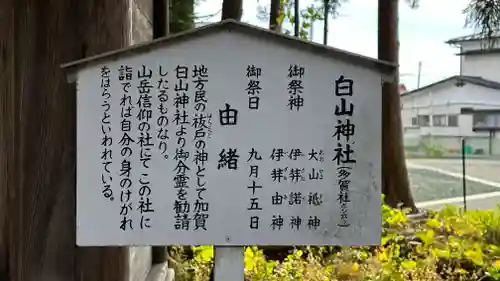 白山神社(多賀社たがしゃ)
御祭神 大山祗神
伊弉諾神
伊弉由神
御祭日 九月十五日
由緒
地方民の祓戸の神として加賀
白山神社より御分霊を勧請
したるものである。
山岳信仰の社にてこの社に
詣でれば自分の身のけがれ
をはらうといわれている。